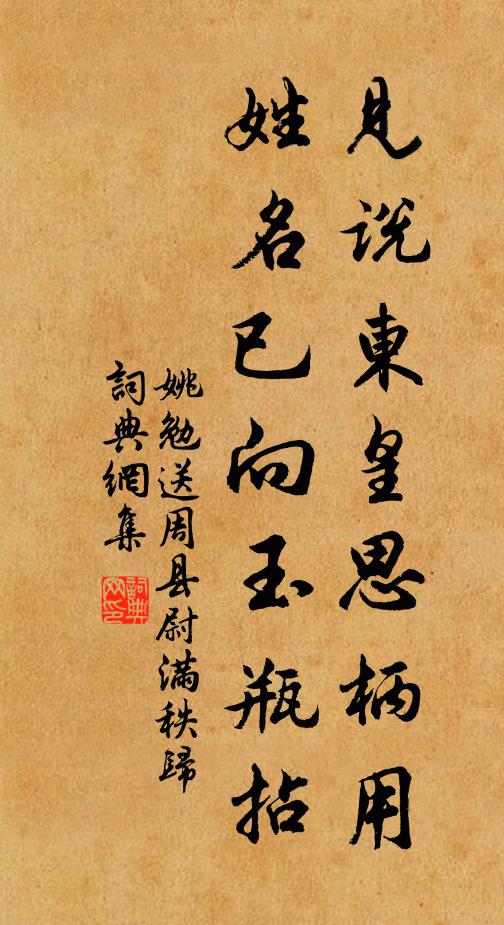 見説東皇思柄用
姓名已向玉瓶拈
姚勉送周县尉满秩歸
詞典網集
詞典网印